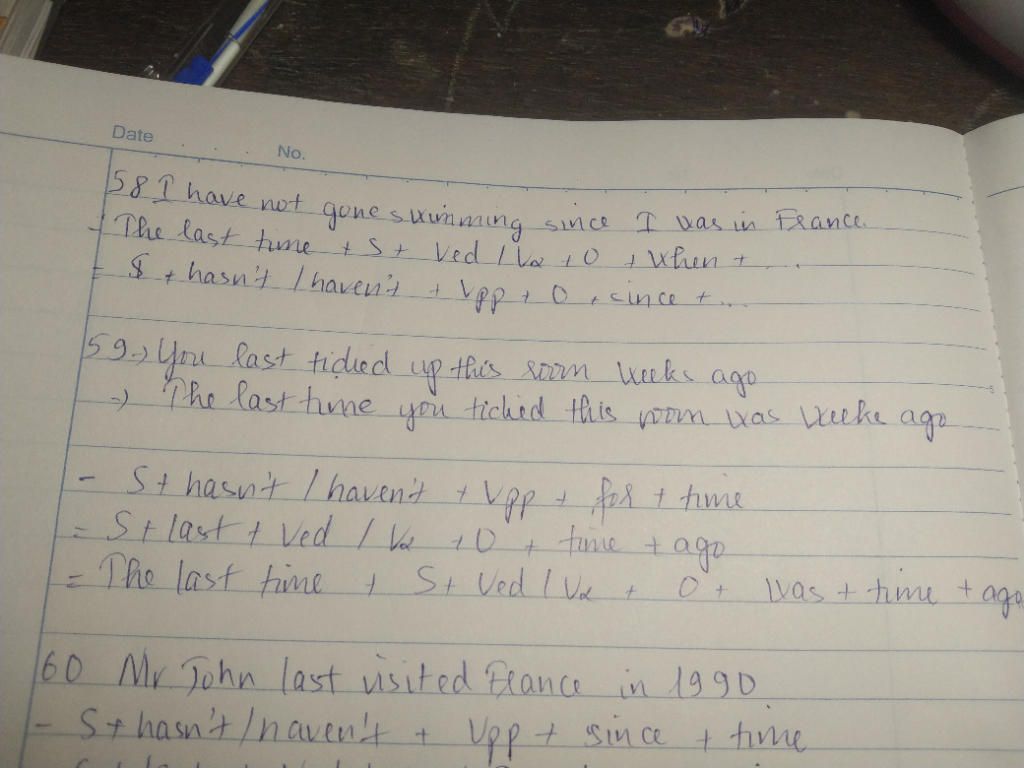 Date
No.
58 I have not gone swimming since I was in France.
- The last time + S + Ved / V2 + O + when + ...
= S + hasn't / haven't + Vpp + O + since + ...
59 → You last tidied up this room weeks ago
→ The last time you tidied this room was weeks ago
- S + hasn't / haven't + Vpp + for + time
= S + last + Ved / V2 + O + time + ago
= The last time + S + Ved / V2 + O + was + time + ago
60 Mr John last visited France in 1990
- S + hasn't / haven't + Vpp + since + time